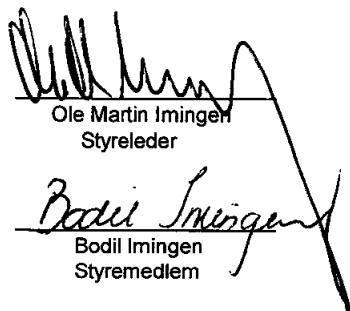 Ole Martin Imingen
Styreleder
Bodil Imingen
Bodil Imingen
Styremedlem